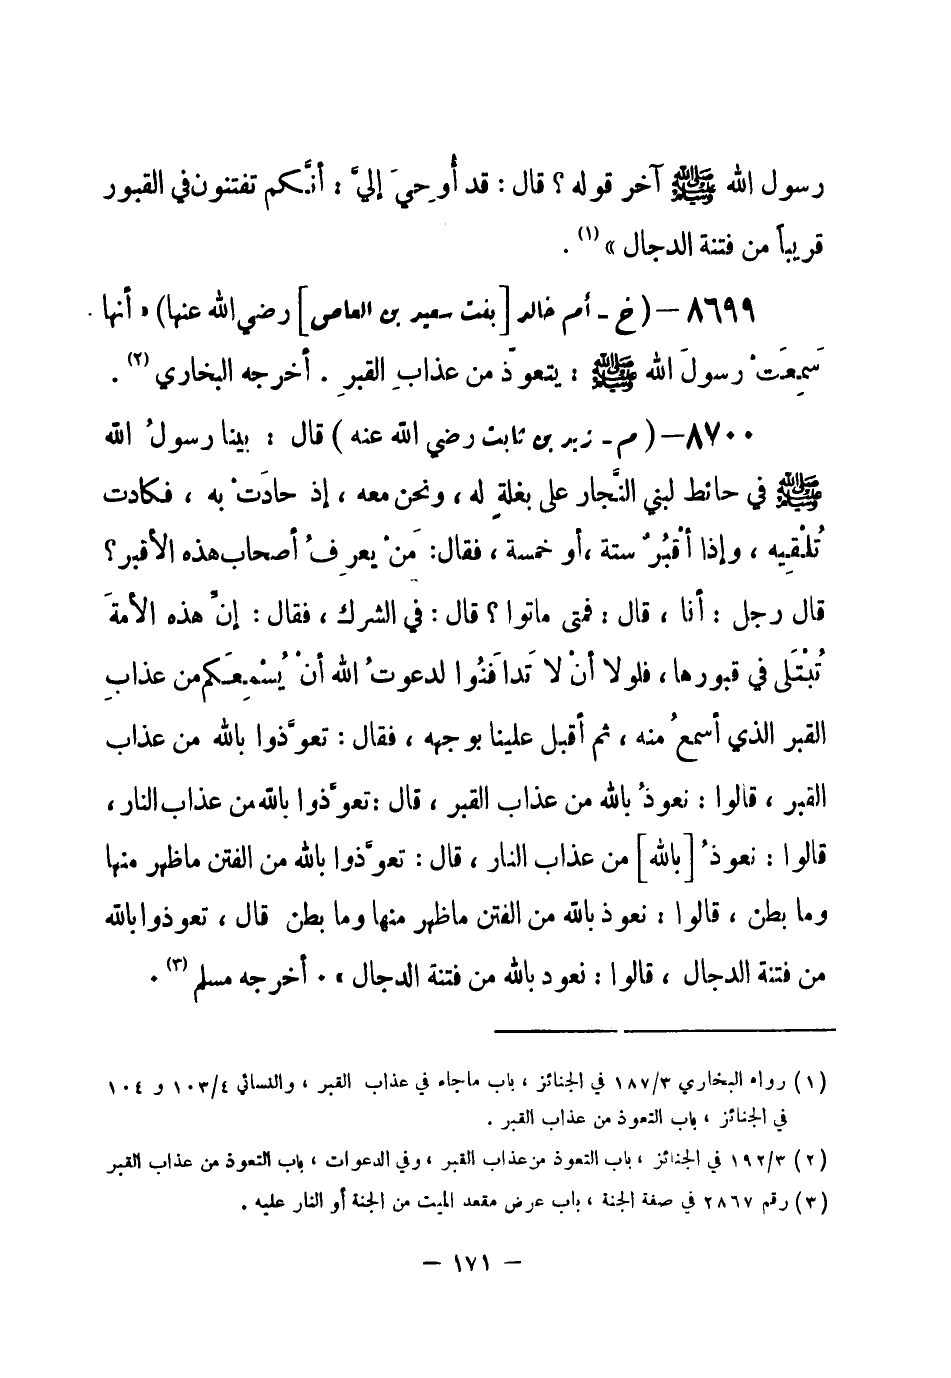 رسول الله ﷺ آخر قوله ؟ قال : قد أُوحيَ إليَّ : أنَّكم تفتنون في القبور
قريباً من فتنة الدجال » (١) .
٨٦٩٩ – ( خ - أم خالد [ بنت سعيد بن العاص ] رضي الله عنها ) « أنها
سَمِعَتْ رسولَ الله ﷺ : يتعوّذ من عذابِ القبرِ . أخرجه البخاري (٢) .
٨٧٠٠ – ( م - زيد بن ثابت رضي الله عنه ) قال : بينا رسولُ الله
ﷺ في حائط لبني النَّجار على بغلةٍ له ، ونحن معه ، إذ حادَتْ به ، فكادت
تُلْقِيه ، وإذا أقْبُرٌ ستة ، أو خمسة ، فقال : مَنْ يعرِفُ أصحاب هذه الأقبر ؟
قال رجل : أنا ، قال : فمتى ماتوا ؟ قال : في الشرك ، فقال : إنَّ هذه الأمةَ
تُبْتَلى في قبورها ، فلولا أنْ لا تَدافَنُوا لدعوتُ الله أنْ يُسْمِعَكم من عذابِ
القبر الذي أسمعُ منه ، ثم أقبل علينا بوجهه ، فقال : تعوَّذوا بالله من عذاب
القبر ، قالوا : نعوذُ بالله من عذاب القبر ، قال : تعوَّذوا بالله من عذاب النار ،
قالوا : نعوذُ [ بالله ] من عذاب النار ، قال : تعوَّذوا بالله من الفتن ماظهر منها
وما بطن ، قالوا : نعوذ بالله من الفتن ماظهر منها وما بطن قال ، تعوذوا بالله
من فتنة الدجال ، قالوا : نعود بالله من فتنة الدجال » . أخرجه مسلم (٣) .
(١) رواه البخاري ١٨٧/٣ في الجنائز ، باب ماجاء في عذاب القبر ، والنسائي ١٠٣/٤ و ١٠٤
في الجنائز ، باب التعوذ من عذاب القبر .
(٢) ١٩٢/٣ في الجنائز ، باب التعوذ من عذاب القبر ، وفي الدعوات ، باب التعوذ من عذاب القبر
(٣) رقم ٢٨٦٧ في صفة الجنة ، باب عرض مقعد الميت من الجنة أو النار عليه .
– ١٧١ –